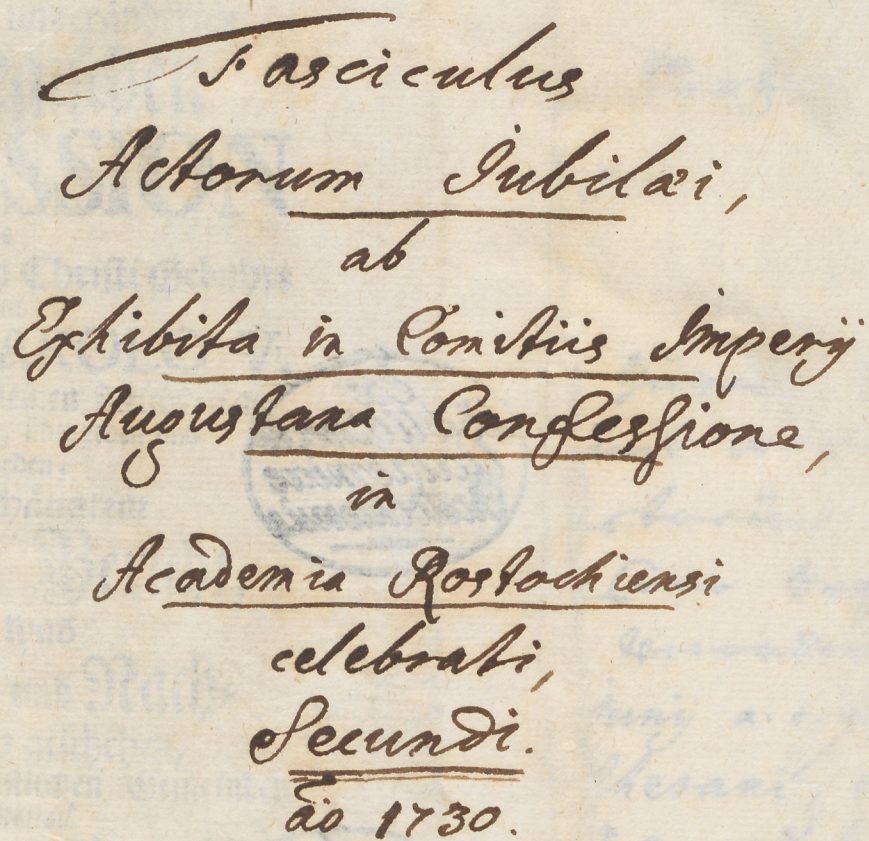 Fasciculus
Actorum Jubilæi,
ab
Exhibita in Comitiis Imperij
Augustana Confessione,
in
Academia Rostochiensi
celebrati,
Secundi.
ao 1730.